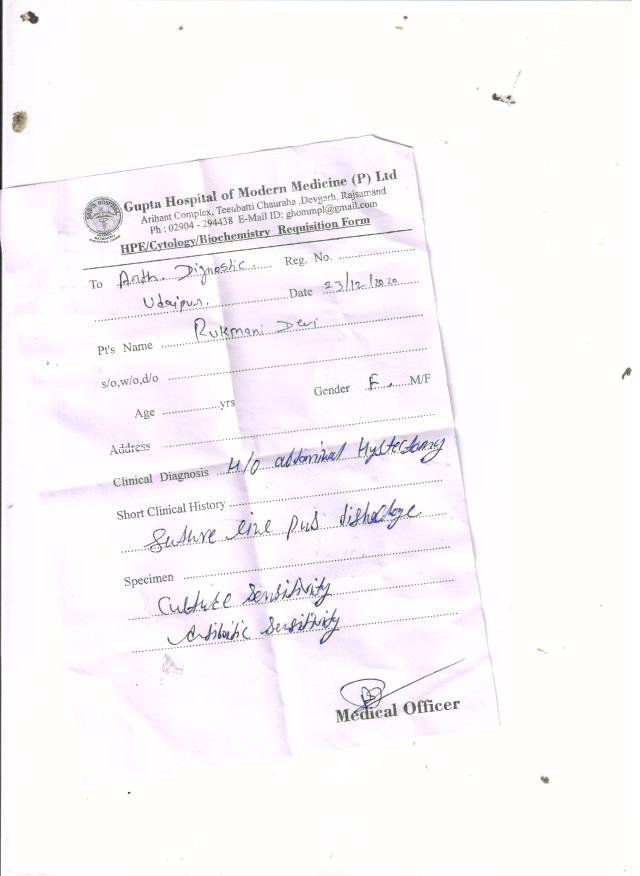 Gupta Hospital of Modern Medicine (P) Ltd
Arihant Complex, Teenbatti Chauraha ,Devgarh, Rajsamand
Ph : 02904 - 294438 E-Mail ID: ghommpl@gmail.com
HPE/Cytology/Biochemistry Requisition Form
To Arth Dignostic Reg. No.
Udaipur. Date 23/12/2020
Pt's Name Rukmani Devi
s/o,w/o,d/o
Age yrs Gender F. M/F
Address
Clinical Diagnosis H/O abdominal Hystectomy
Short Clinical History
Suture line pus dishcharge
Specimen
Culture Sensitivity
Antibiotic Sensitivity
Medical Officer